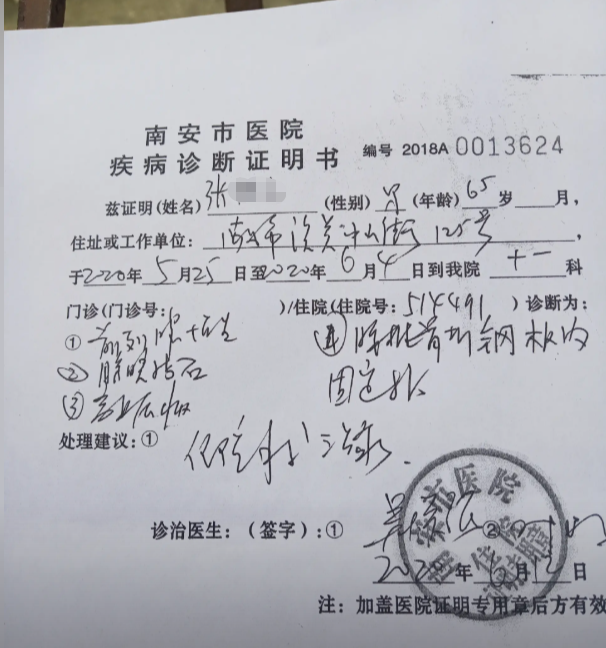 南安市医院
疾病诊断证明书 编号 2018A 0013624
兹证明(姓名) 张 (性别) 男 (年龄) 65 岁 月,
住址或工作单位: 南安市 街 125号 ,
于2020年 5月25日至2020年 6月4日到我院 十一 科
门诊(门诊号: )/住院(住院号: 514491 )诊断为:
① 前列腺 ④ 钢板内
② 膀胱结石 固定术
③ 高血压
处理建议: ① 住院 治疗.
诊治医生: (签字): ① ②
年 月 日
注: 加盖医院证明专用章后方有效